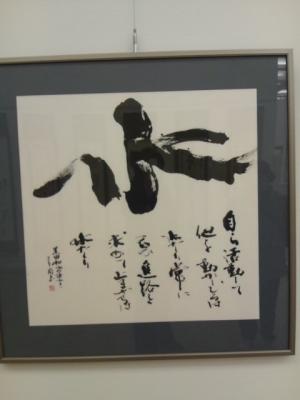 水
自ら活動して
他を動かしむるは
水なり 常に
己の進路を
求めて止まざるは
水なり